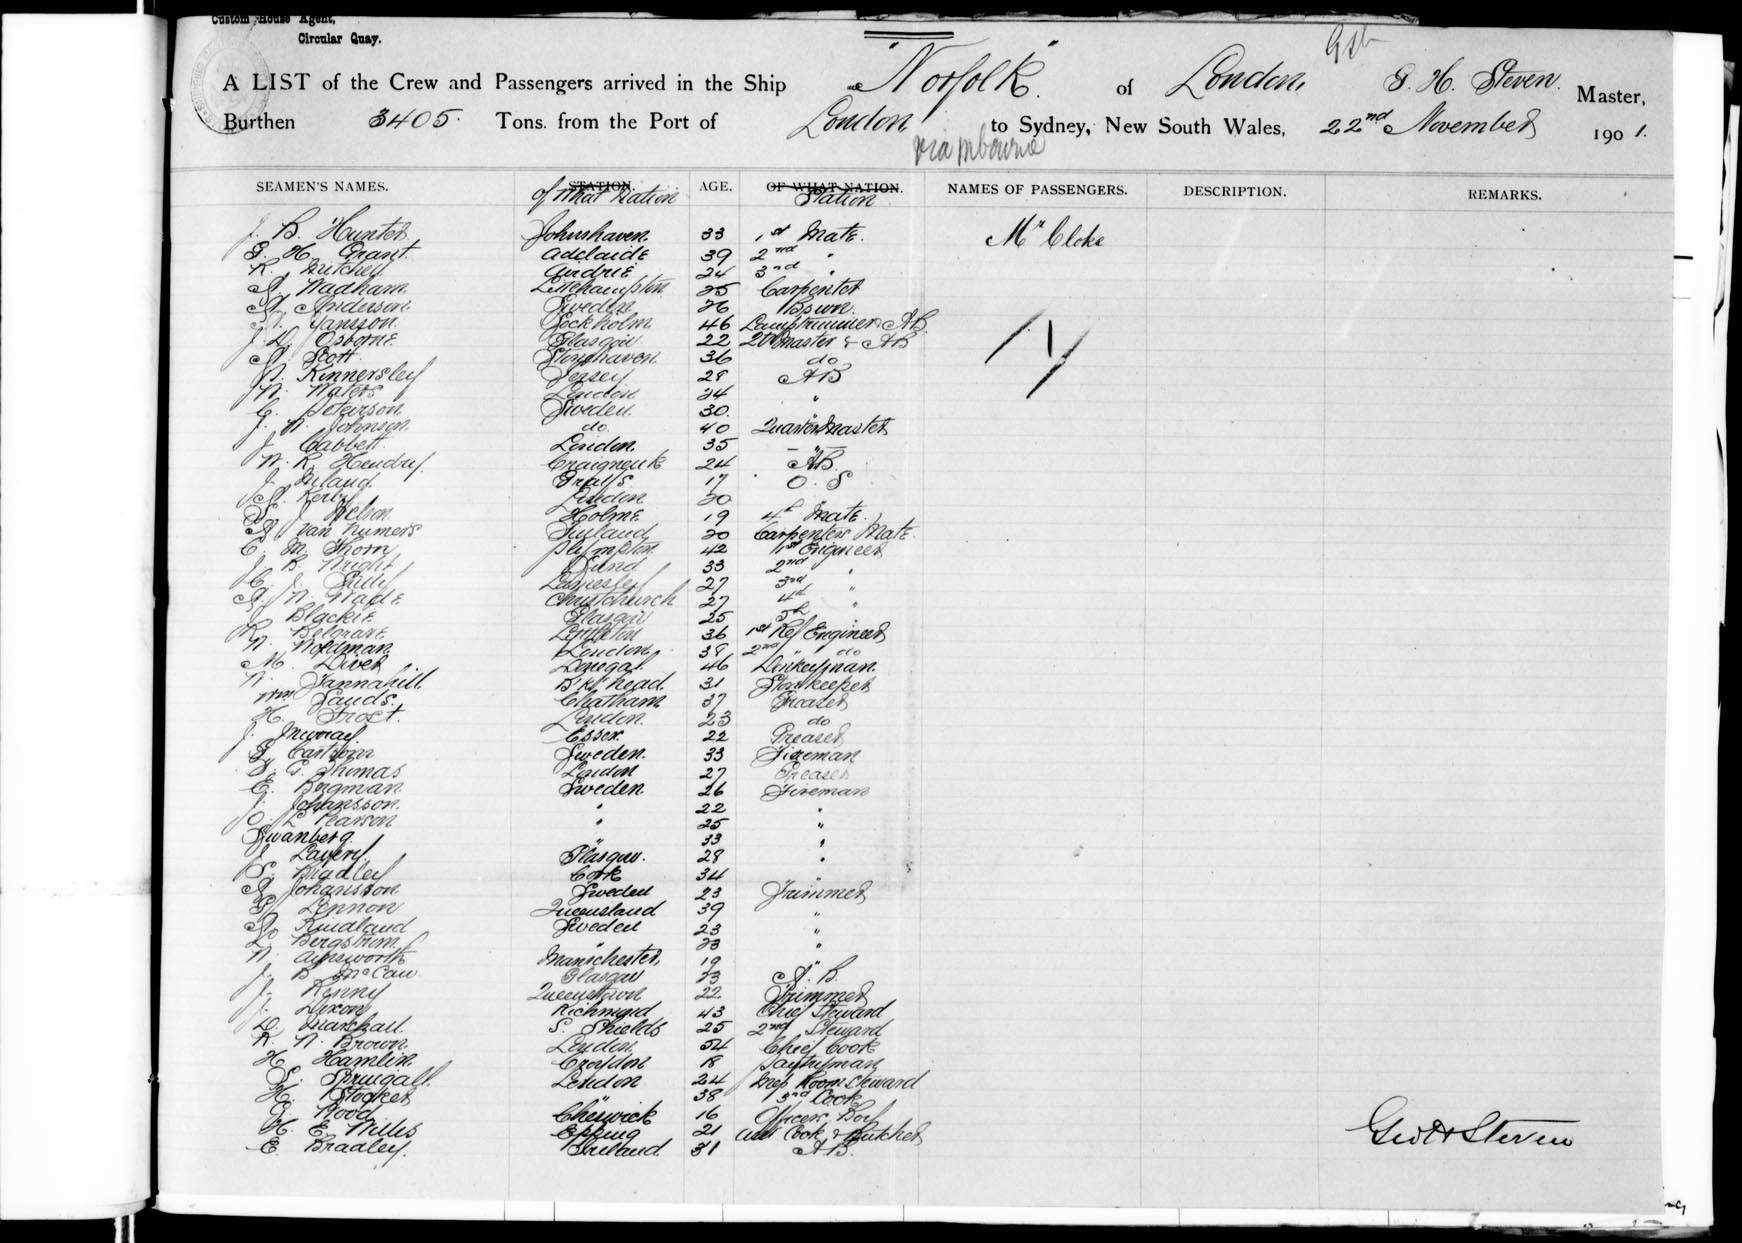 Custom House Agent,
Circular Quay.
A LIST of the Crew and Passengers arrived in the Ship "Norfolk" of London, G. H. Steven Master,
Burthen 3405 Tons. from the Port of London to Sydney, New South Wales, 22nd November 1901.
via Mbourne
SEAMEN'S NAMES. STATION. AGE. OF WHAT NATION. NAMES OF PASSENGERS. DESCRIPTION. REMARKS.
of What Nation Station
J. B. Hunter Johnshaven 33 1st Mate. Mr Cloke
G. H. Grant Adelaide 39 2nd "
R. Mitchell Airdrie 24 3rd "
A. Wadham Littlehampton 25 Carpenter
A. Anderson Sweden 26 Bswn.
Jansson Stockholm 46 Lamptrimmer AB
J. Osborne Glasgow 22 QrMaster & AB
A. Scott Stonehaven 36 do
W. Kinnersley Jersey 28 AB
W. Waters London 34 "
C. Peterson Sweden 30
J. A. Johnson do 40 Quartermaster
J. Cabbett London 35 "
W. R. Hendry Craigneuk 24 AB.
J. Grays 17 O. S
A. London 20
S. J. Nelson Holme 19 4th Mate
A. Van Numers Finland 20 Carpenters Mate
C. M. Thorn Plympton 42 1st Engineer
J. B. Wright 33 2nd "
C. J. Lamesley 27 3rd "
A. W. Wade Christchurch 27 4th "
J. Blackie Glasgow 25 5th
R. Belgrave 36 1st Ref Engineer
W. Nordman London 38 2nd " do
M. Diver Donegal 46 Donkeyman
W. Tannahill B'k'head 31 Storekeeper
Wm Sands Chatham 37 Greaser
H. Frost London 23 do
J. Murray Essex 22 Greaser
G. Sweden 33 Fireman
G. Thomas London 27 Greaser
E. Bergman Sweden 26 Fireman
J. Johansson " 22 "
O. L. Pearson " 25 "
Swanberg " 33 "
J. Lavery Glasgow. 28 "
Bradley Cork 34 "
A. Johansson Sweden 23 Trimmer
G. Lennon Queensland 39 "
Rudland Sweden 23 "
L. Bergstrom " 23 "
W. Aynsworth Manchester 19 "
J. B. McCaw Glasgow 23 A. B.
J. Kenny Queenstown 22 Trimmer
J. Dixon Richmond 43 Chief Steward
D. Marshall S. Shields 25 2nd Steward
R. W. Brown London 54 Chief Cook
H. Hamlin Croydon 18 Pantryman
S. Springall London 24 Mess Room Steward
H. Stocker " 38 3rd Cook
G. Wood Cheswick 16 Officers Boy
H. E. Willis Epping 21 Asst Cook & Butcher
E. Bradley Ireland 31 AB.
Geo H Steven